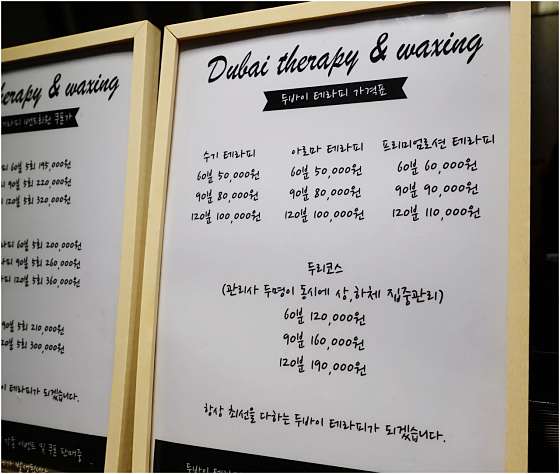 therapy & waxing
60분 5회 195,000원
90분 5회 220,000원
120분 5회 320,000원
60분 5회 200,000원
90분 5회 260,000원
120분 5회 360,000원
90분 5회 210,000원
5회 300,000원
테라피가 되겠습니다.
이벤트 및 쿠폰 판매중
Dubai therapy & waxing
두바이 테라피 가격표
수기 테라피 아로마 테라피 프리미엄로션 테라피
60분 50,000원 60분 50,000원 60분 60,000원
90분 80,000원 90분 80,000원 90분 90,000원
120분 100,000원 120분 100,000원 120분 110,000원
두리코스
(관리사 두명이 동시에 상,하체 집중관리)
60분 120,000원
90분 160,000원
120분 190,000원
항상 최선을 다하는 두바이 테라피가 되겠습니다.
두바이 테라피